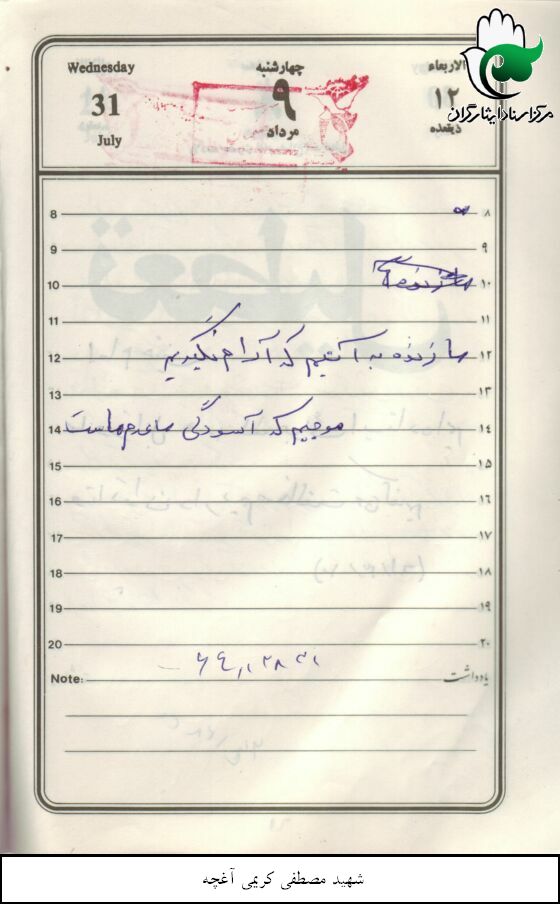 مرکز اسناد ایثارگران
Wednesday چهارشنبه الاربعاء
31 ۹ ۱۲
July مرداد ذیقعده
8 ۸
9 ۹
10 ۱۰
11 ۱۱
12 ما زنده به آنیم که آرام نگیریم ۱۲
13 ۱۳
14 موجیم که آسودگی ما عدم ماست ۱۴
15 ۱۵
16 ۱۶
17 ۱۷
18 ۱۸
19 ۱۹
20 ۲۰
Note: یادداشت
شهید مصطفی کریمی آغچه